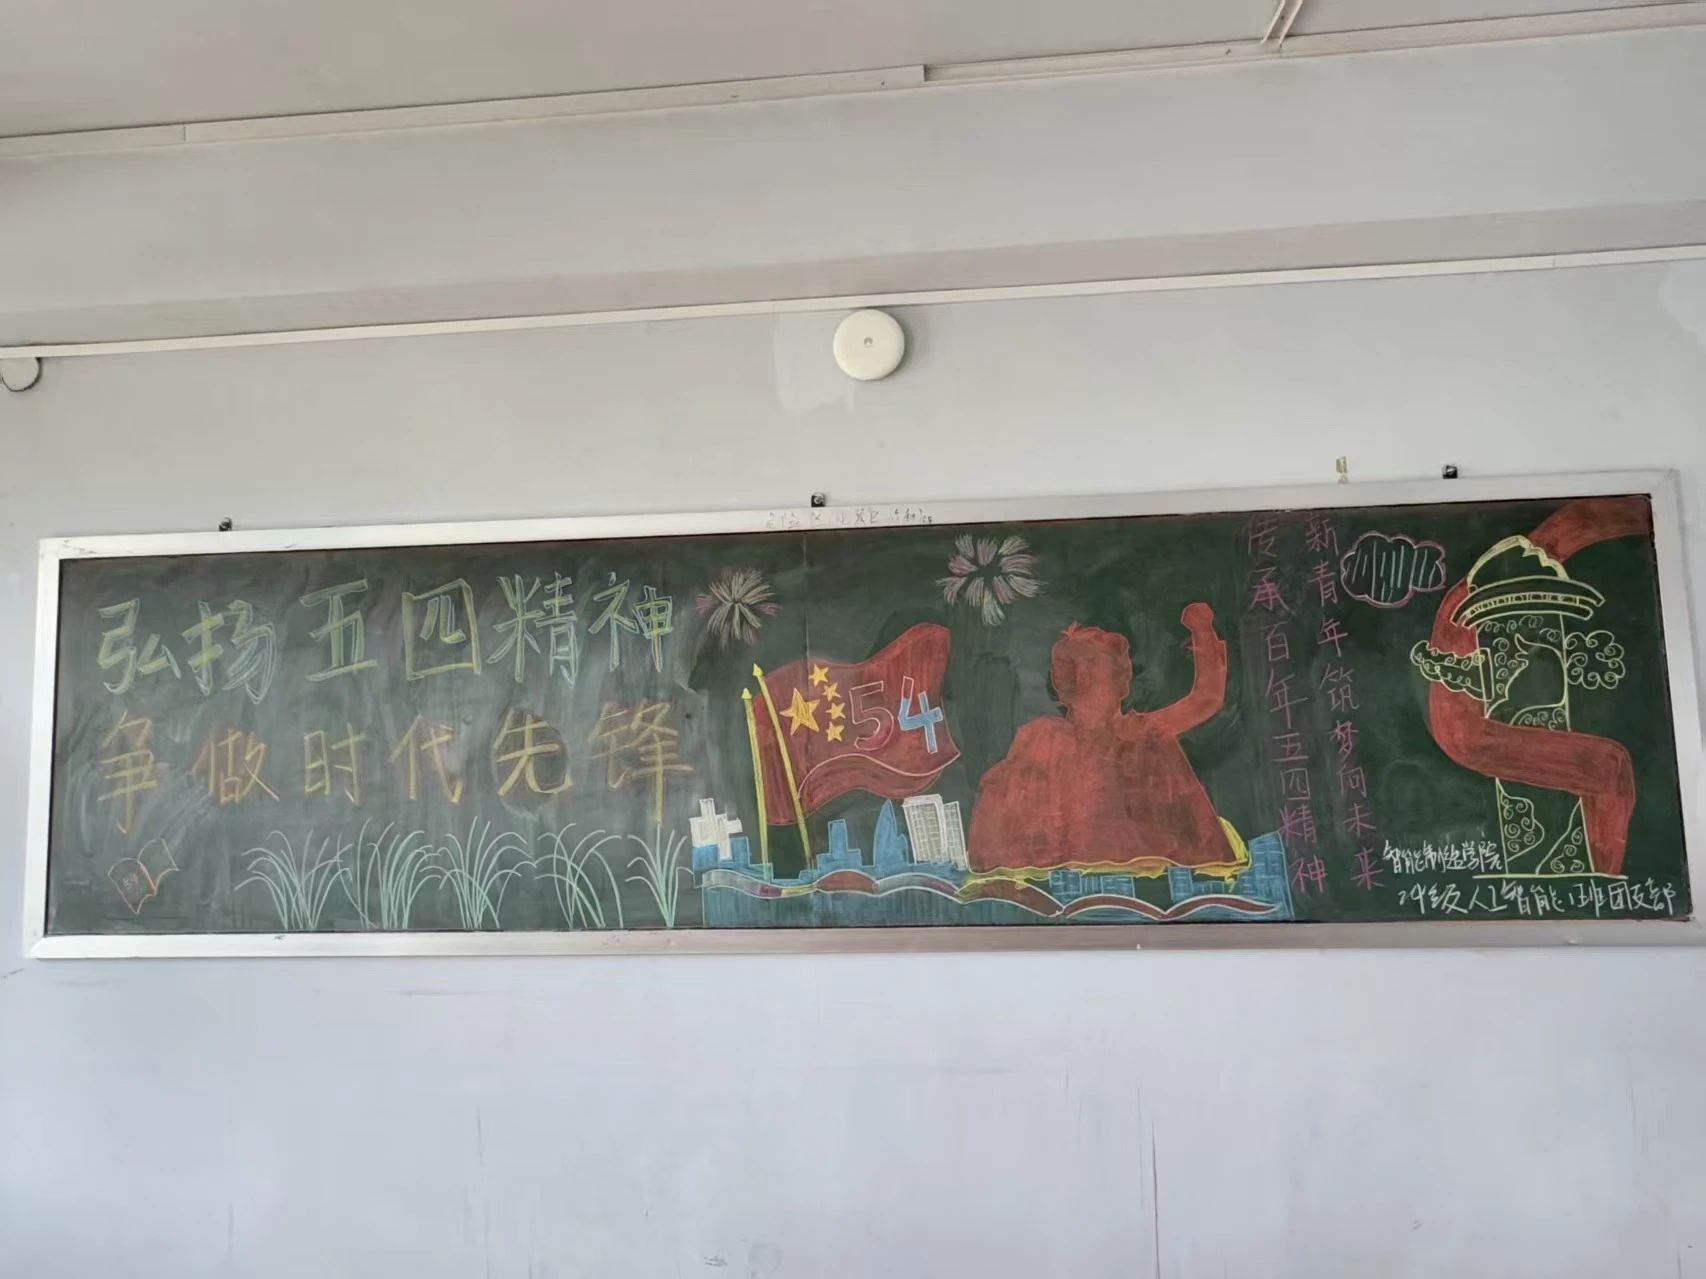 弘扬五四精神
争做时代先锋
54
54
传承百年五四精神
新青年筑梦向未来
智能制造学院
24级人工智能1班团支部